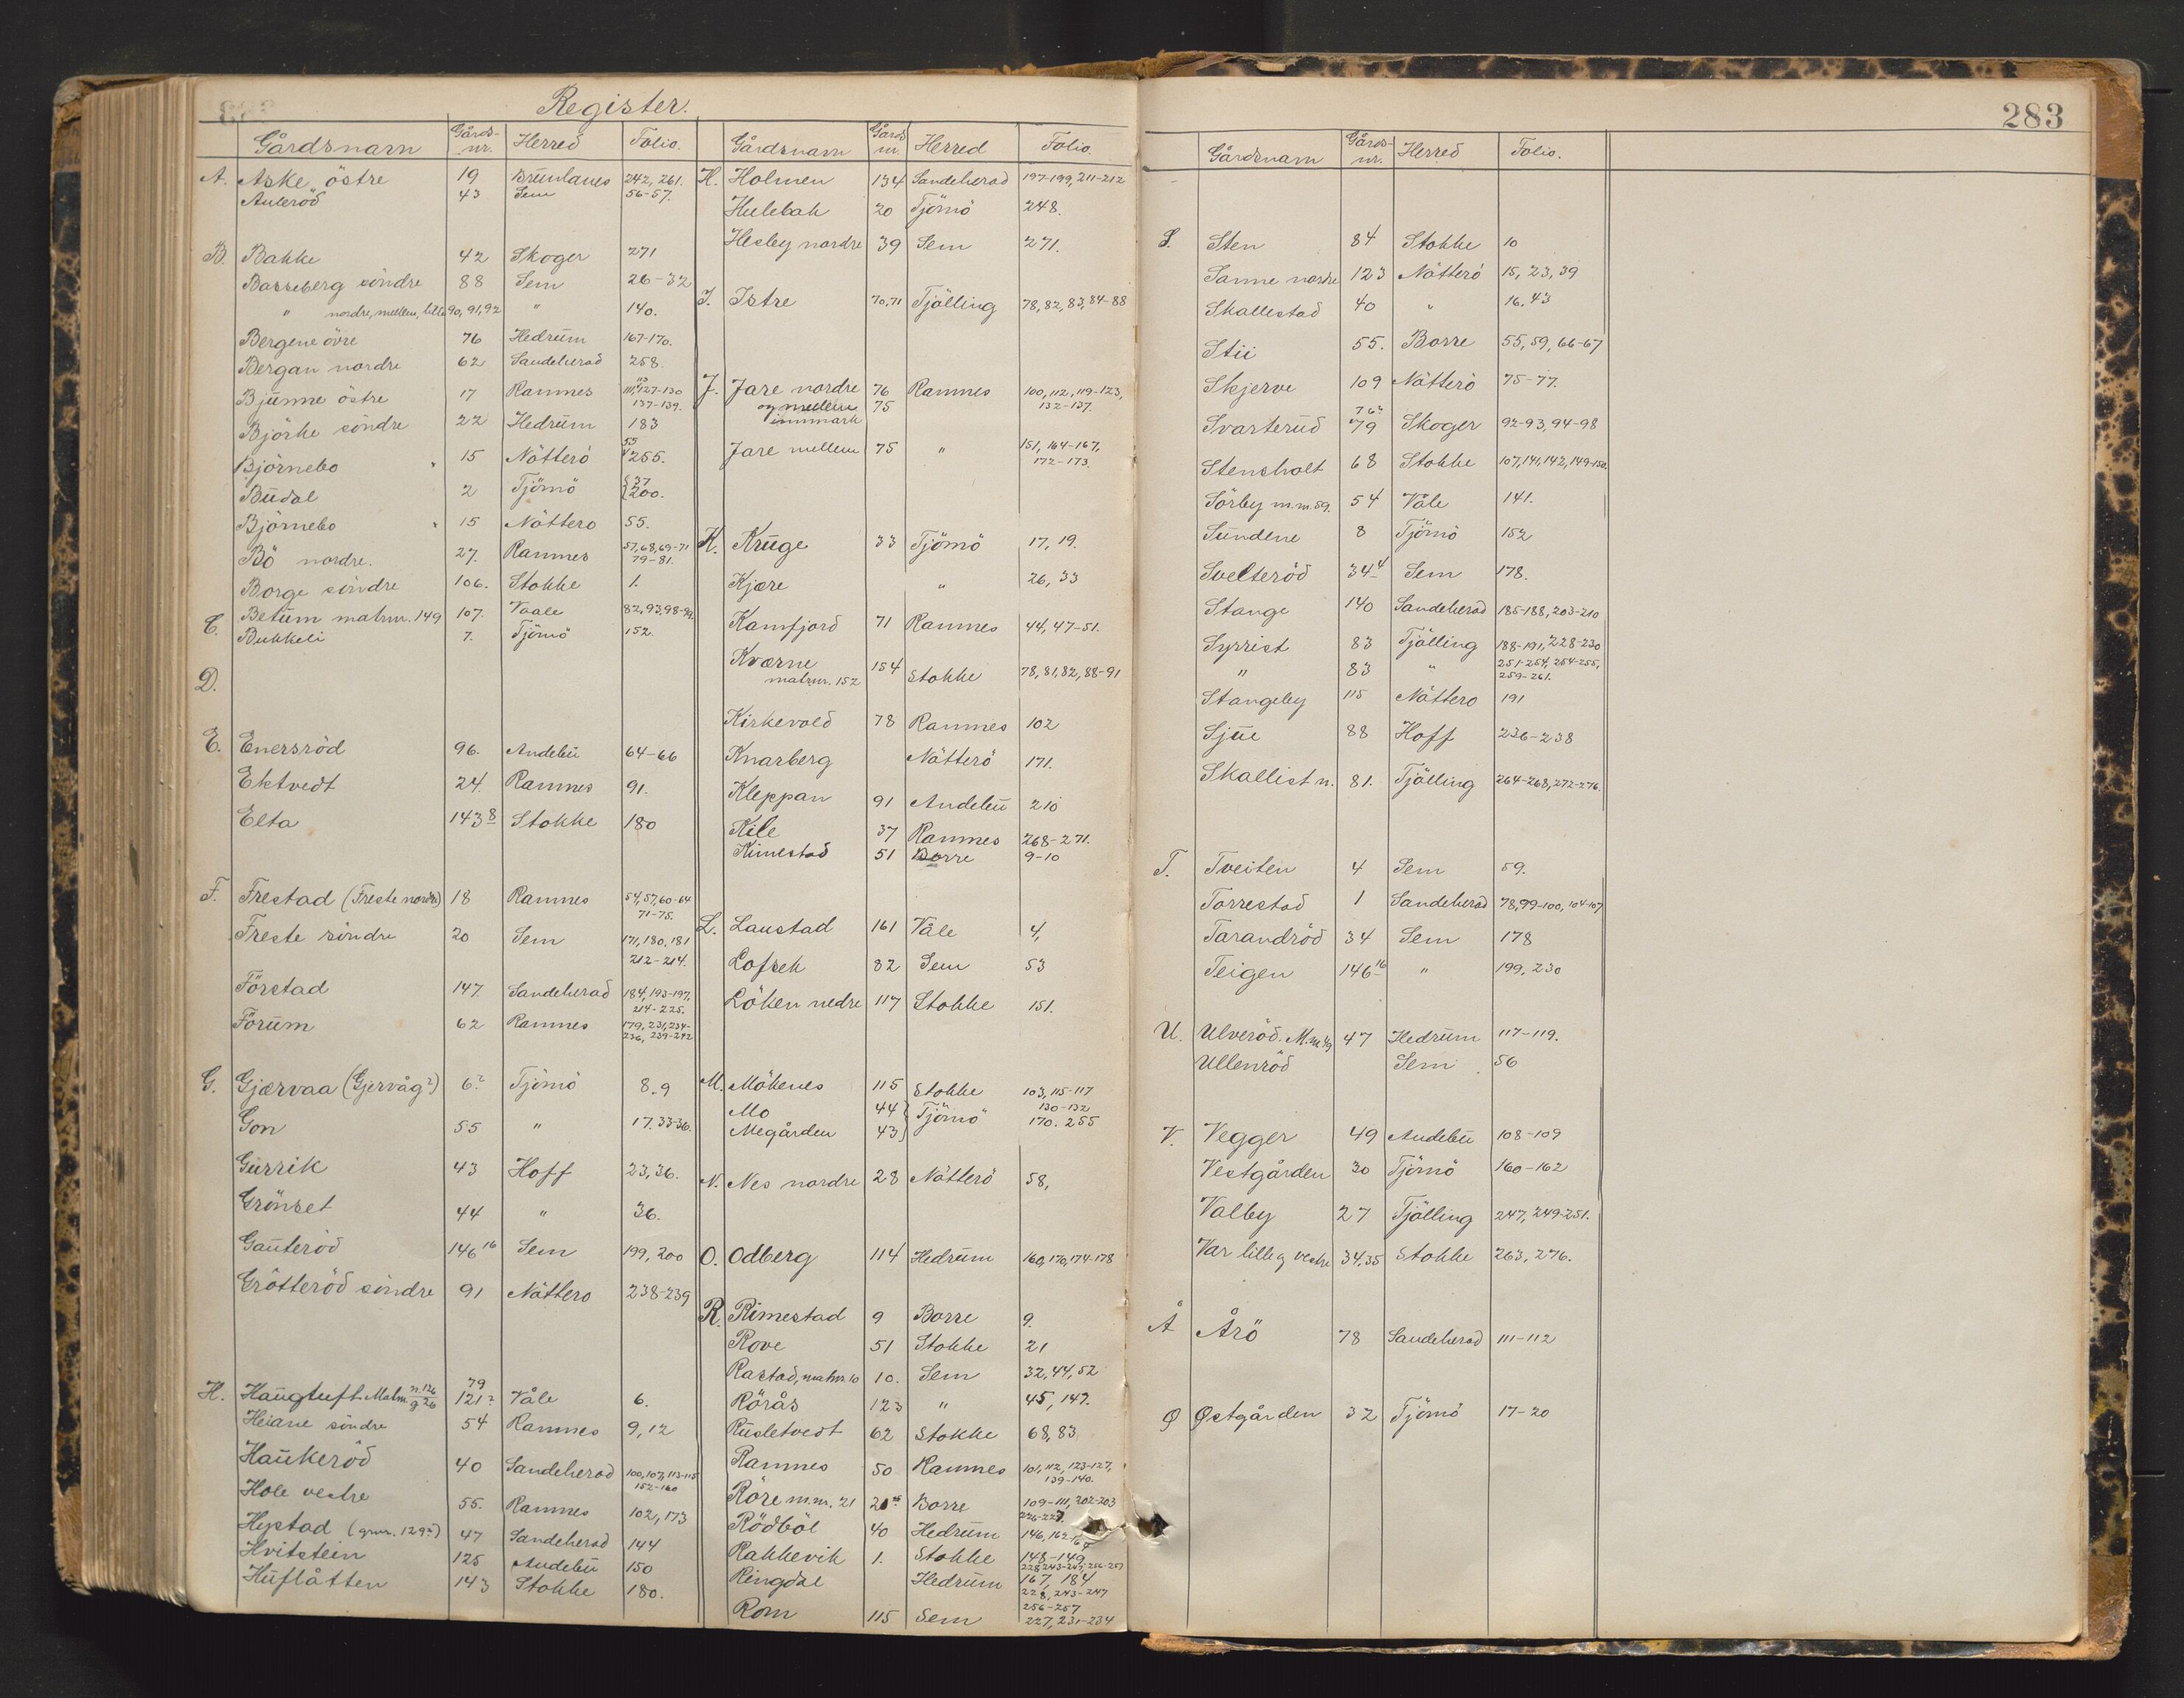 Register.
Gårdsnavn Gårds-nr. Herred Folio.
A. Aske östre 19 Brunlanes 242, 261.
Auleröd 43 Sem 56-57.
B. Bakke 42 Skoger 271
Basseberg söndre 88 Sem 26-32
" nordre, mellem, lille 90, 91, 92 " 140.
Bergene övre 76 Hedrum 167-170.
Bergan nordre 62 Sandeherad 258.
Bjunne östre 17 Ramnes 111, 113, 127-130
137-139.
Björke söndre 22 Hedrum 183
Björnebo 15 Nötterö 55 255.
Budal 2 Tjömö 37 200.
Björnebo 15 Nötterö 55.
Bö nordre. 27. Ramnes 57, 68, 69-71
79-81.
Borge söndre 106. Stokke 1.
C. Betum matrnr. 149 107. Vaale 82, 93, 98-99.
Bukkeli 7. Tjömö 152.
D.
E. Enersröd 96. Andebu 64-66
Ektvedt 24. Ramnes 91.
Elta 143 8 Stokke 180
F. Frestad (Freste nordre) 18 Ramnes 54, 57, 60-64
71-75.
Freste söndre 20 Sem 171, 180, 181
212-214.
Förstad 147. Sandeherad 184, 193-197,
214-225.
Förum 62 Ramnes 179, 231, 234-
236, 239-242
G. Gjærvaa (Gjervåg?) 6 2 Tjömö 8-9
Gon 55 " 17. 33-36.
Gurrik 43 Hoff 23, 36.
Grönset 44 " 36.
Gauteröd 146 16 Sem 199, 200
Grötteröd söndre 91 Nötterö 238-239
H. Haugtuft Matrn. n. 126 g 26 79 121 2 Våle 6.
Heiane söndre 54 Ramnes 9, 12
Haukeröd 40 Sandeherad 100, 107, 113-115
152-160
Hole vestre 55. Ramnes 102, 173
Hystad (grnr. 129 2) 47 Sandeherad 144
Hvitstein 125 Andebu 150
Huflåtten 143 Stokke 180.
Gårdsnavn Gårds nr. Herred Folio.
H. Holmen 134 Sandeherad 197-199, 211-212
Hulebak 20 Tjömö 248.
Hesby nordre 39 Sem 271.
I. Istre 70, 71 Tjölling 78, 82, 83, 84-88
J. Jare nordre 76 Ramnes 100, 112, 119-123,
og mellem 75 132-137.
innmark
Jare mellem 75 " 151, 164-167,
172-173.
K. Kruge 33 Tjömö 17, 19.
Kjære " 26, 33
Kamfjord 71 Ramnes 44, 47-51.
Kværne 154 Stokke 78, 81, 82, 88-91
matrnr. 152
Kirkevold 78 Ramnes 102
Knarberg Nötterö 171.
Kleppan 91 Andebu 210
Kile 37 Ramnes 268-271.
Kimestad 51 Borre 9-10
L. Laustad 161 Våle 4,
Lofsek 82 Sem 53
Löken nedre 117 Stokke 151.
M. Mökenes 115 Stokke 103, 115-117
130-132
Mo 44 Tjömö 170. 255
Megården 43
N. Nes nordre 28 Nötterö 58,
O. Odberg 114 Hedrum 160, 170, 174-178
R. Rimestad 9 Borre 9.
Rove 51 Stokke 21
Rastad, matnr. 10 10. Sem 32, 44, 52
Rörås 123 " 45, 147.
Rusletvedt 62 Stokke 68, 83
Ramnes 50 Ramnes 101, 112, 123-127,
139-140.
Röre m.nr. 21 Borre 109-111, 202-203
226-227.
Rödböl 40 Hedrum 146, 162-
Rakkevik 1. Stokke 148-149
228, 243-247, 256-257
Ringdal Hedrum 167, 184
228, 243-247
256-257
Rom 115 Sem 227, 231-234
283
Gårdsnavn Gårds-nr. Herred Folio.
S. Sten 84 Stokke 10
Sanne nordre 123 Nötterö 15, 23, 39
Skallestad 40 " 16, 43
Stii 55. Borre 55, 59, 66-67
Skjerve 109 Nötterö 75-77.
Svarterud 76 2 79 Skoger 92-93, 94-98
Stensholt 68 Stokke 107, 141, 142, 149-150.
Sörby m.nr. 59. 54 Våle 141.
Sundene 8 Tjömö 152
Svelteröd 34 4 Sem 178.
Stange 140 Sandeherad 185-188, 203-210
Syrrist 83 Tjölling 188-191, 228-230
" 83 " 251-254, 254-255,
259-261.
Stangeby 115 Nötterö 191
Sjue 88 Hoff 236-238
Skallist n. 81. Tjölling 264-268, 272-276.
T. Tveiten 4 Sem 59.
Torrestad 1 Sandeherad 78, 99-100, 104-107
Tarandröd 34 Sem 178
Teigen 146 16 " 199, 230
U. Ulveröd. M.nr. 49 47 Hedrum 117-119.
Ullenröd Sem 56
V. Vegger 49 Andebu 108-109
Vestgården 30 Tjömö 160-162
Valby 27 Tjölling 247, 249-251.
Var lille og vestre 34, 35 Stokke 263, 276.
Å Årö 78 Sandeherad 111-112
Ø Østgården 32 Tjömö 17-20